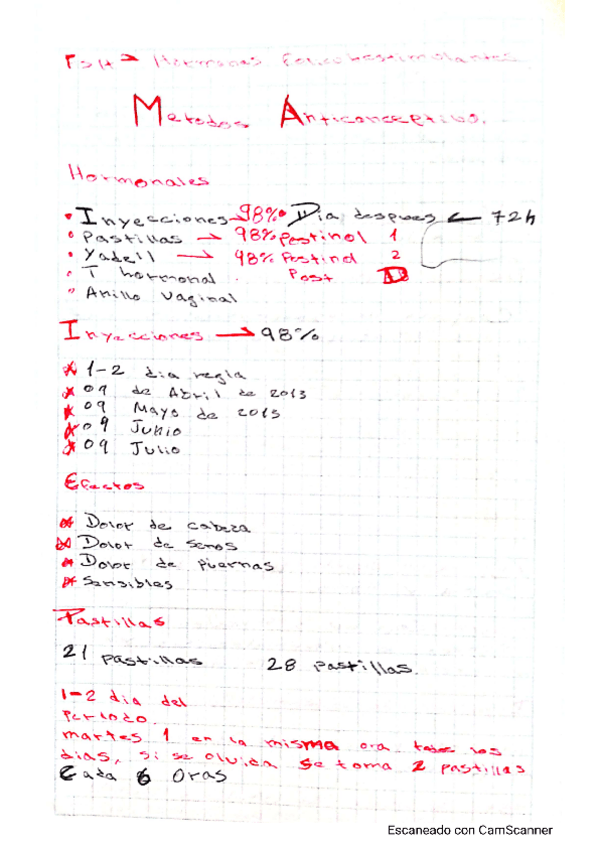 FSH → Hormonas Foliculoestimulantes
Metodos Anticonceptivo.
Hormonales
• Inyecciones → 98% • Dia despues ← 72h
• Pastillas → 98% Postinol 1
• Yadell → 98% Postind 2
• T hormonal . Post
• Anillo vaginal
Inyecciones → 98%
* 1-2 dia regla
* 09 de Abril de 2013
* 09 Mayo de 2013
* 09 Junio
* 09 Julio
Efectos
* Dolor de cabeza
* Dolor de senos
* Dolor de piernas
* Sensibles
Pastillas
21 pastillas 28 pastillas.
1-2 dia del
Periodo.
martes 1 en la misma ora todos los
dias, si se olvida se toma 2 pastillas
Cada 6 Oras
Escaneado con CamScanner